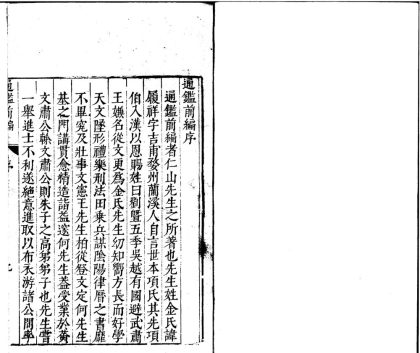 通鑑前編序
通鑑前編者仁山先生之所著也先生姓金氏諱
履祥字吉甫婺州蘭溪人自言世本項氏其先項
伯入漢以恩賜姓曰劉暨五季吳越有國避武肅
王嫌名從文更為金氏先生幼知嚮方長而好學
天文墬形禮樂刑法田乘兵謀陰陽律曆之書靡
不畢究及壯事文憲王先生柏從登文定何先生
基之門講貫愈精造詣益邃何先生蓋受業於黃
文肅公榦文肅公則朱子之高第弟子也先生嘗
一舉進士不利遂絕意進取以布衣游諸公間率
通鑑前編
序